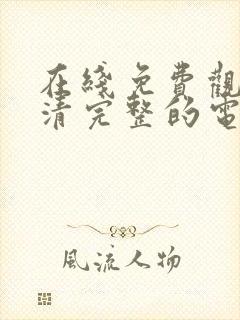 在綫免費觀
清完整的電
風流人物